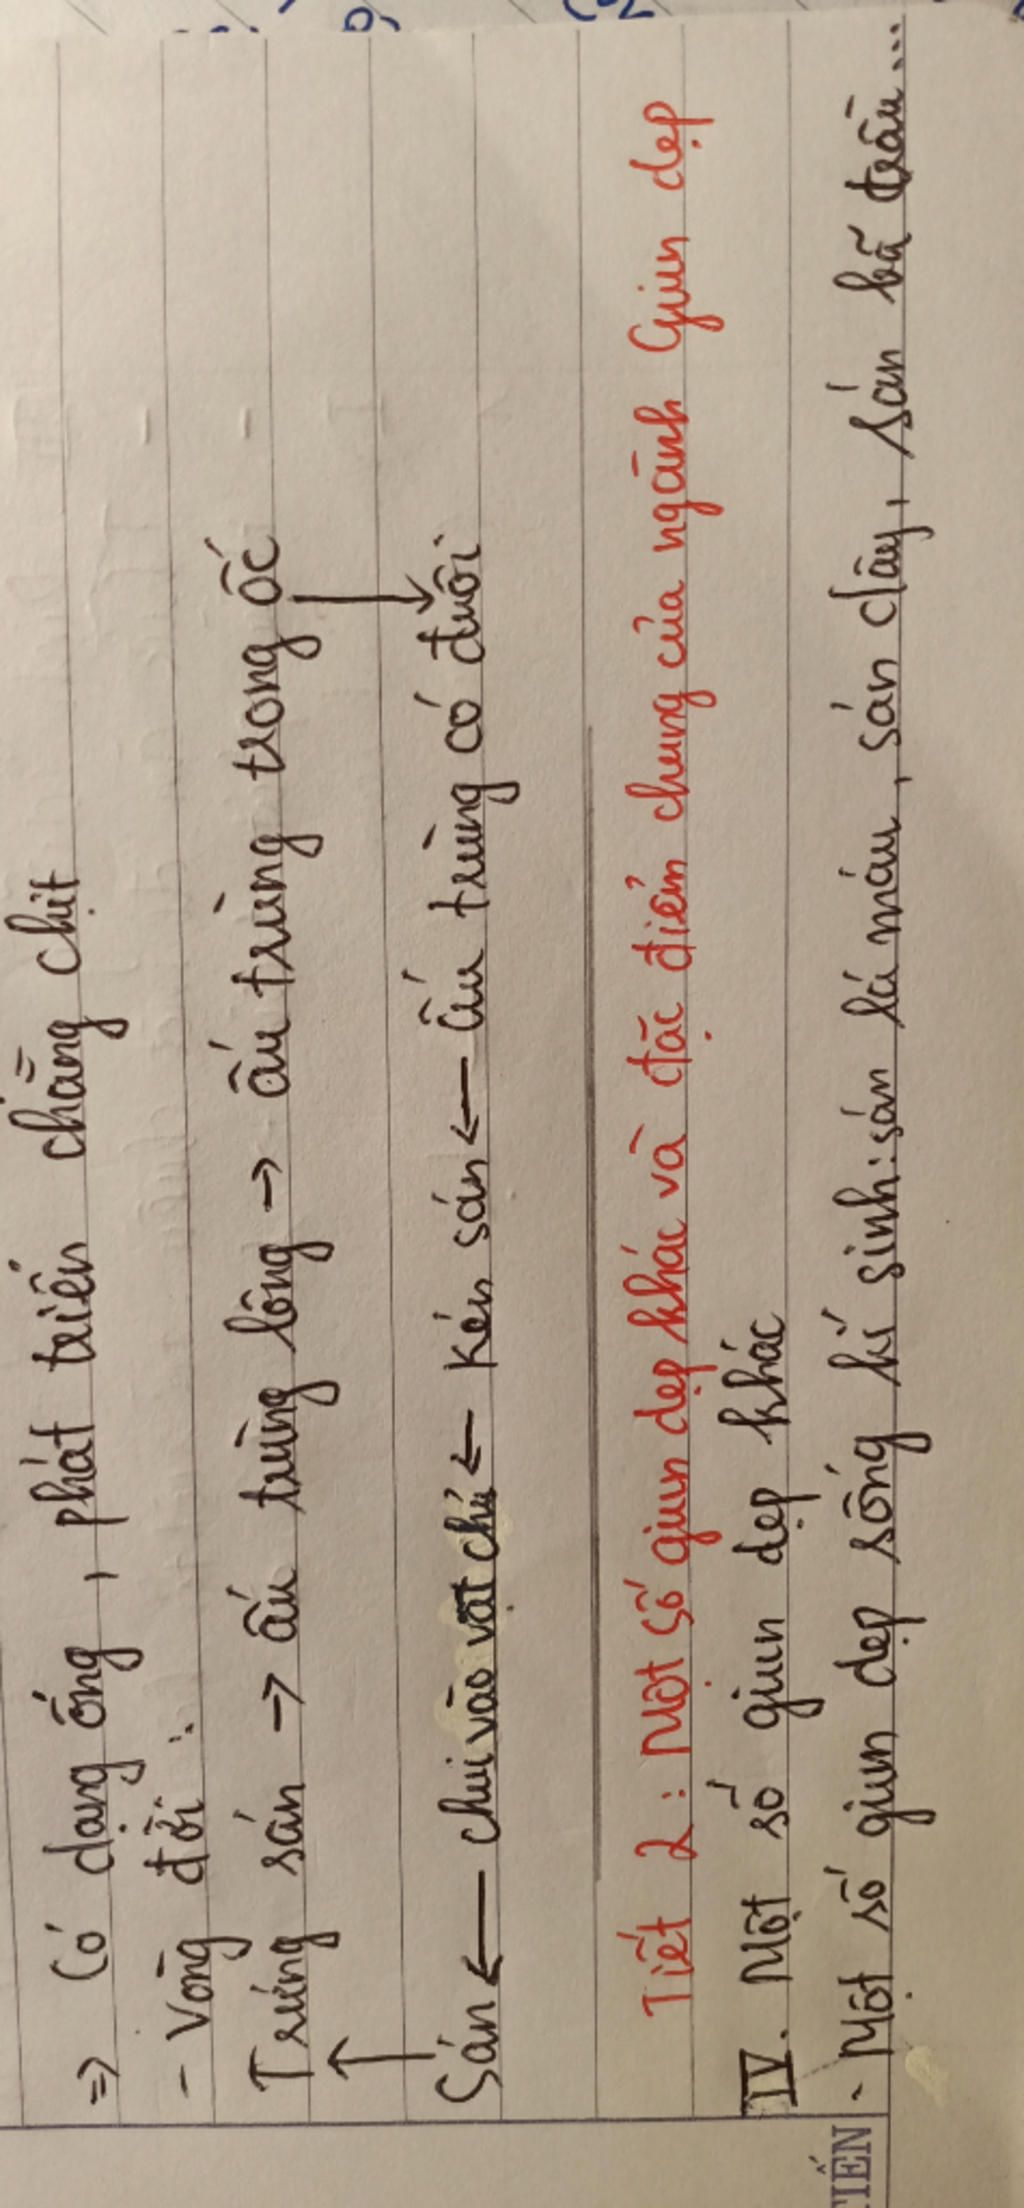 => Có dạng ống, phát triển chằng chịt
- Vòng đời:
Trứng sán → ấu trùng lông → ấu trùng trong ốc
Sán ← chui vào vật chủ ← Kén sán ← Ấu trùng có đuôi
Tiết 2: Một số giun dẹp khác và đặc điểm chung của ngành Giun dẹp
IV. Một số giun dẹp khác
- Một số giun dẹp sống kí sinh: sán lá máu, sán dây, sán bã trầu...
TIẾN